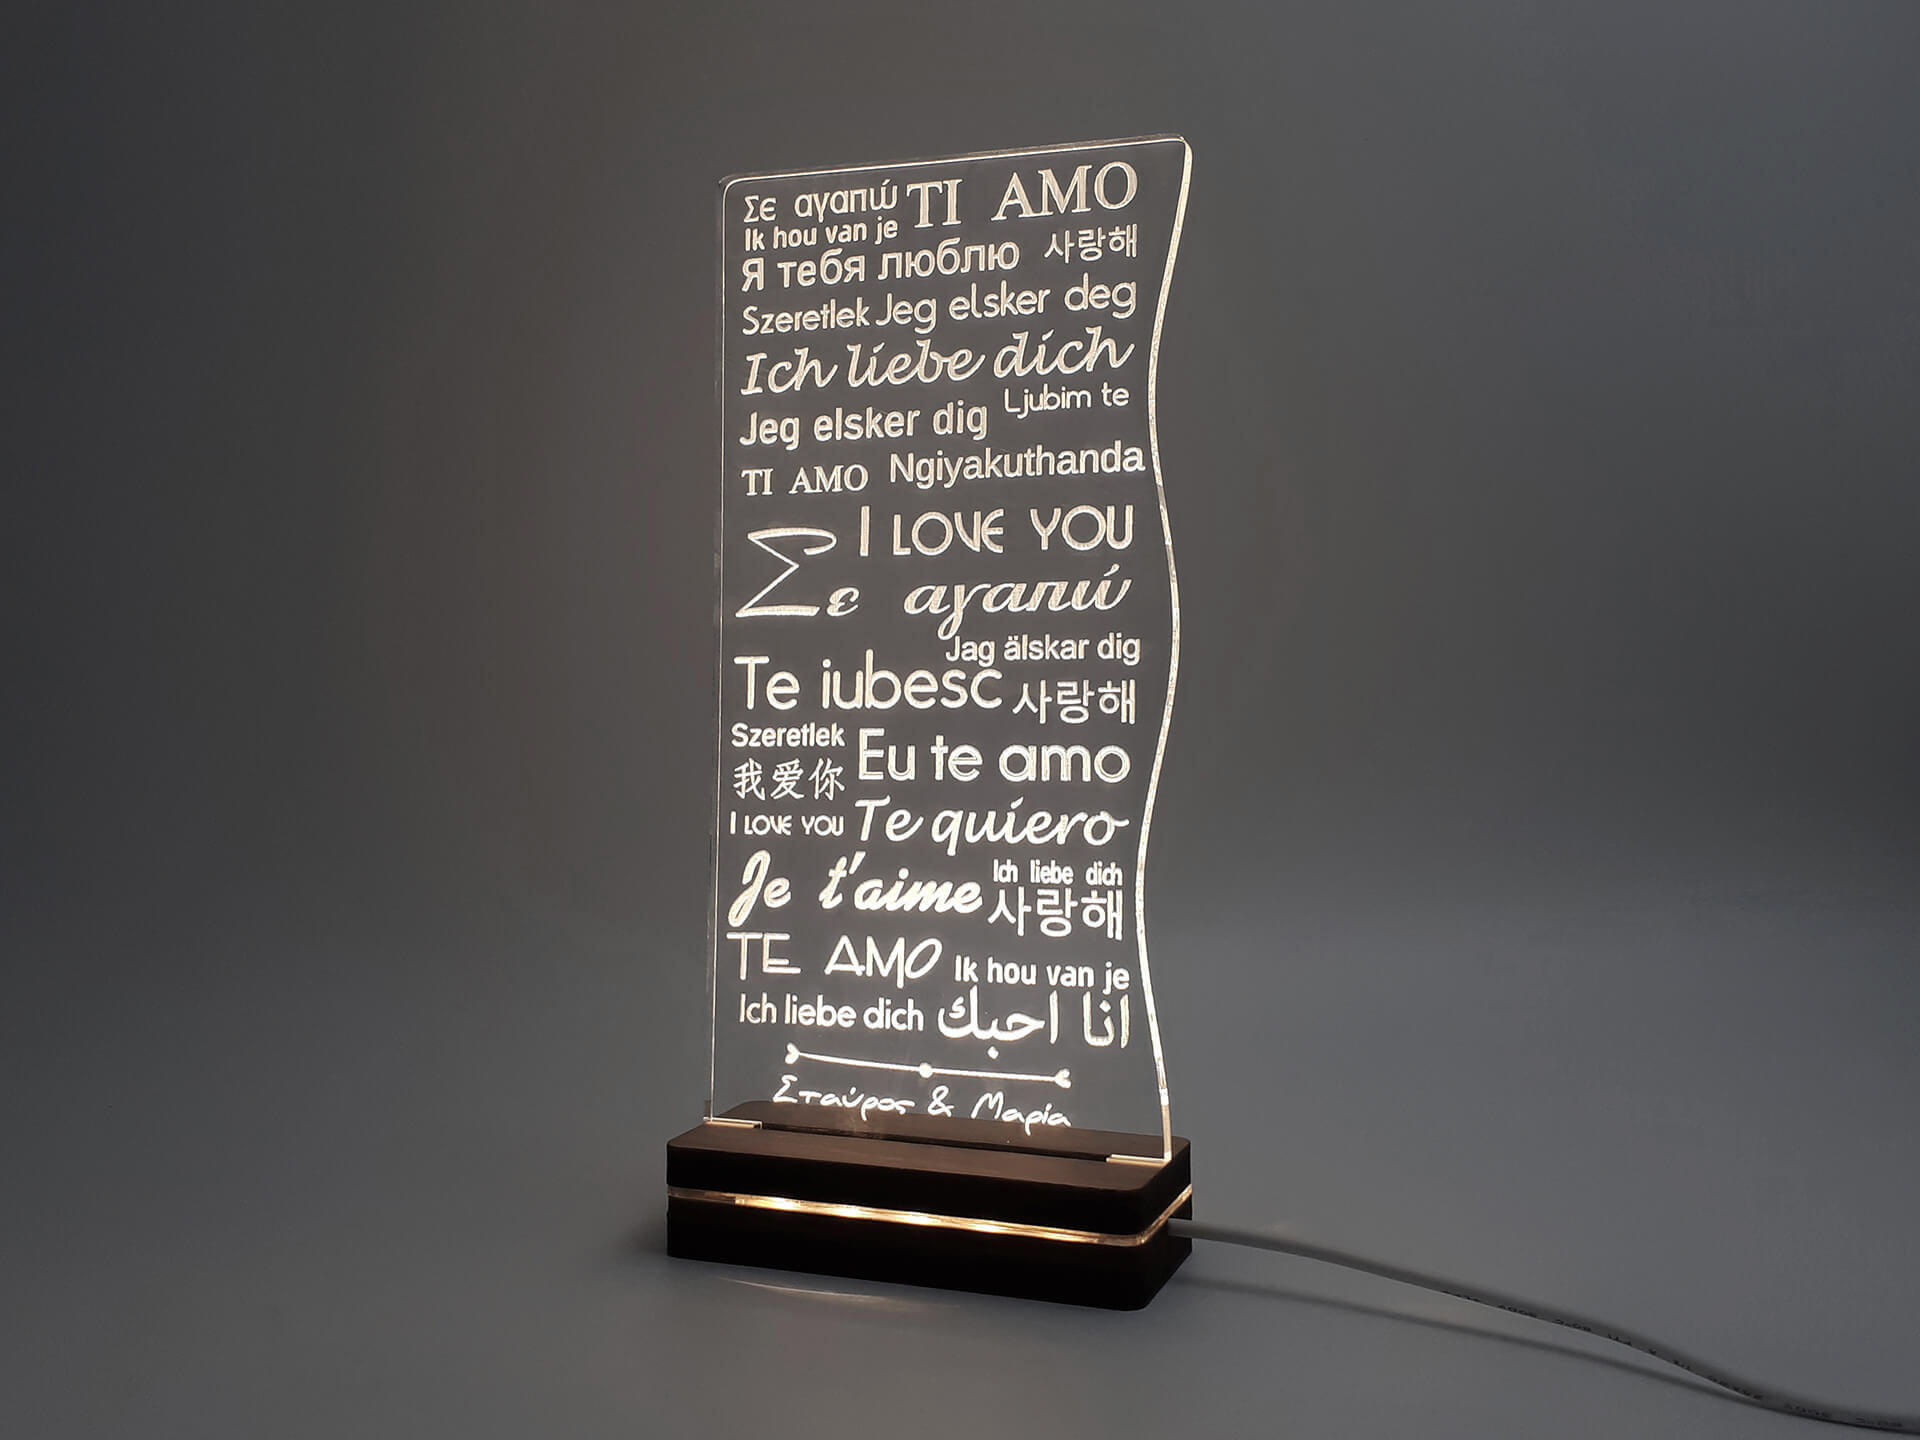 Σε αγαπώ TI AMO
Ik hou van je
Я тебя люблю 사랑해
Szeretlek Jeg elsker deg
Ich liebe dich
Jeg elsker dig Ljubim te
TI AMO Ngiyakuthanda
I LOVE YOU
Σε αγαπώ
Jag älskar dig
Te iubesc 사랑해
Szeretlek Eu te amo
我爱你
I LOVE YOU Te quiero
Je t'aime Ich liebe dich
사랑해
TE AMO Ik hou van je
Ich liebe dich انا احبك
Σταύρος & Μαρία